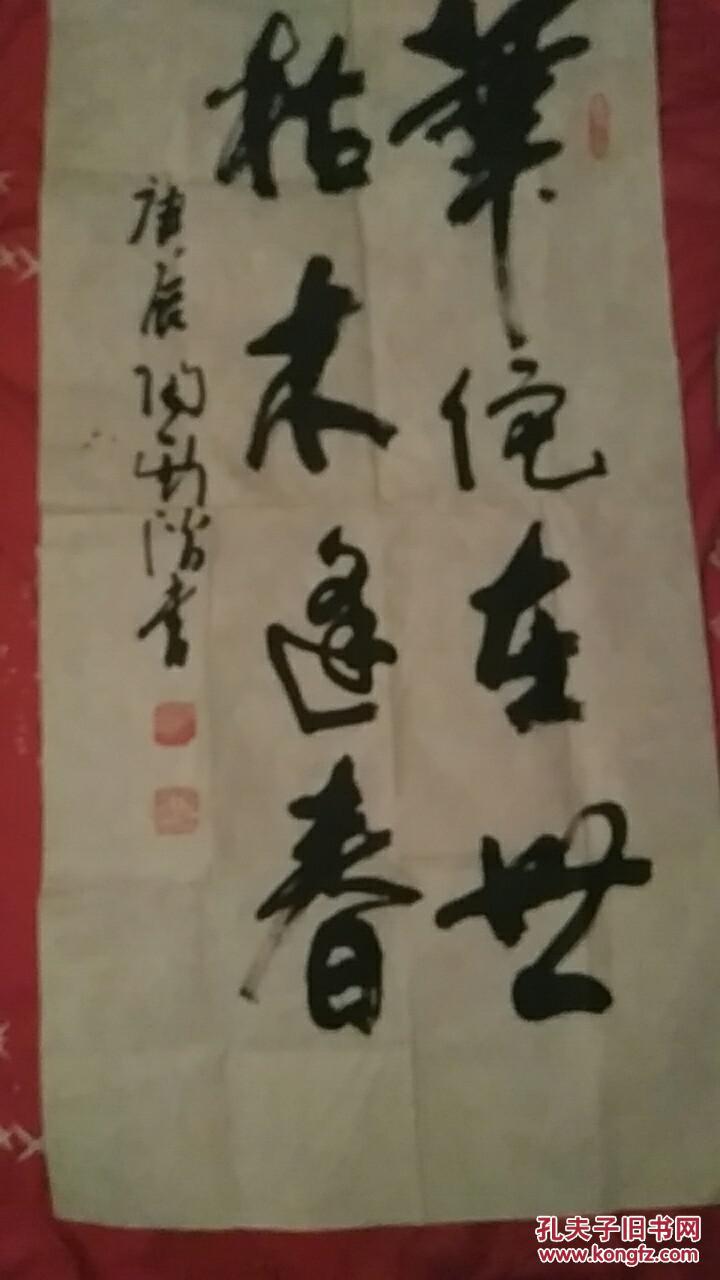 華佗在世
枯木逢春
庚辰 書
孔夫子旧书网
www.kongfz.com